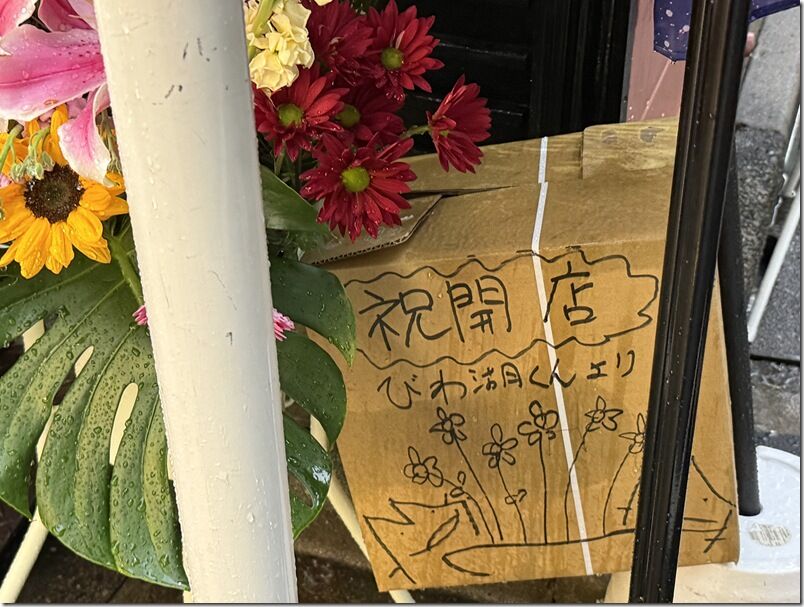 祝開店
びわ湖くんより